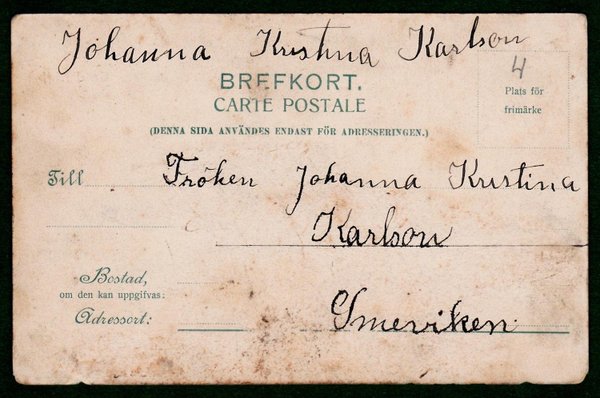 Johanna Kristina Karlson
4
BREFKORT.
CARTE POSTALE
Plats för
frimärke
(DENNA SIDA ANVÄNDES ENDAST FÖR ADRESSERINGEN.)
Till Fröken Johanna Kristina
Karlson
Bostad,
om den kan uppgifvas:
Adressort: Smeviken